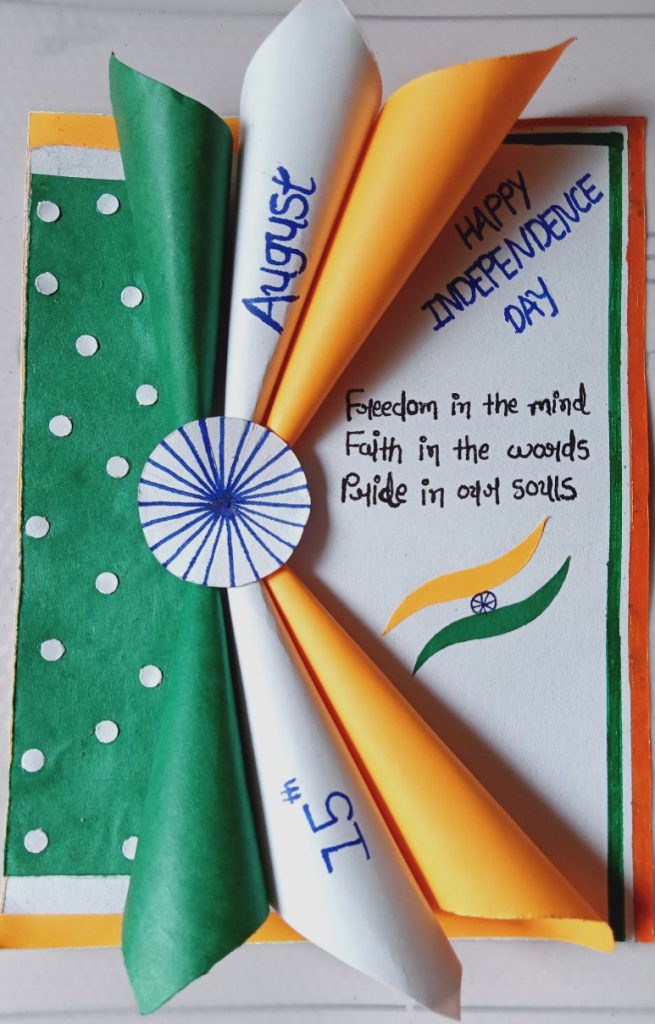 August
HAPPY
INDEPENDENCE
DAY
Freedom in the mind
Faith in the words
Pride in our souls
15th